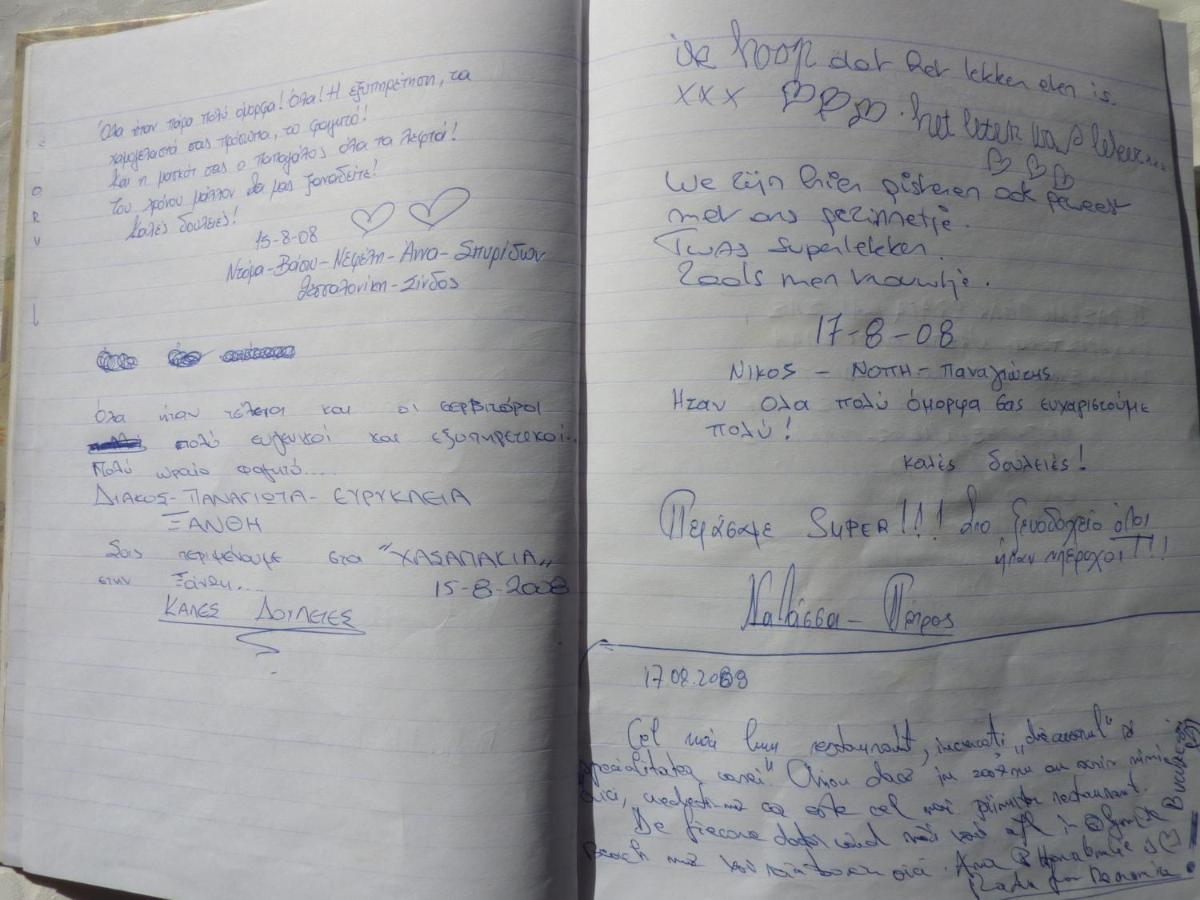 Όλα ήταν πάρα πολύ όμορφα! Όλα! Η εξυπηρέτηση, τα
χαμογελαστά σας πρόσωπα, το φαγητό!
Και η μασκότ σας ο παπαγάλος όλα τα λεφτά!
Του χρόνου μάλλον θα μας ξαναδείτε!
Καλές δουλειές!
15-8-08
Ντόμα-Βάσω-Νεφέλη-Άννα-Σπυρίδων
Θεσσαλονίκη-Σίνδος
Όλα ήταν τέλεια και οι σερβιτόροι
πολύ ευγενικοί και εξυπηρετικοί..
Πολύ ωραίο φαγητό....
ΔΙΑΚΟΣ-ΠΑΝΑΓΙΩΤΑ-ΕΥΡΥΚΛΕΙΑ
ΞΑΝΘΗ
Σας περιμένουμε στα "ΧΑΣΑΠΑΚΙΑ"
στην Ξάνθη....
15-8-2008
ΚΑΛΕΣ ΔΟΥΛΕΙΕΣ
ik hoop dat het lekker eten is.
xxx het eten was
We zijn hier gisteren ook geweest
met ons gezinnetje.
Twas superlekker.
Zoals men vrouwtje.
17-8-08
ΝΙΚΟΣ - ΝΟΠΗ - Παναγιώτης
Ηταν ολα πολύ όμορφα σας ευχαριστούμε
πολύ!
καλές δουλειές!
Περάσαμε SUPER!!! Στο ξενοδοχείο όλοι
ήταν υπέροχοι!!!
Νατάσσα - Πέτρος
17.08.2009
Cel mai bun restaurant, incercati "
specialitatea casei"
aici, ca este cel mai restaurant.
De fiecare data cand
Beach Ana
Romania